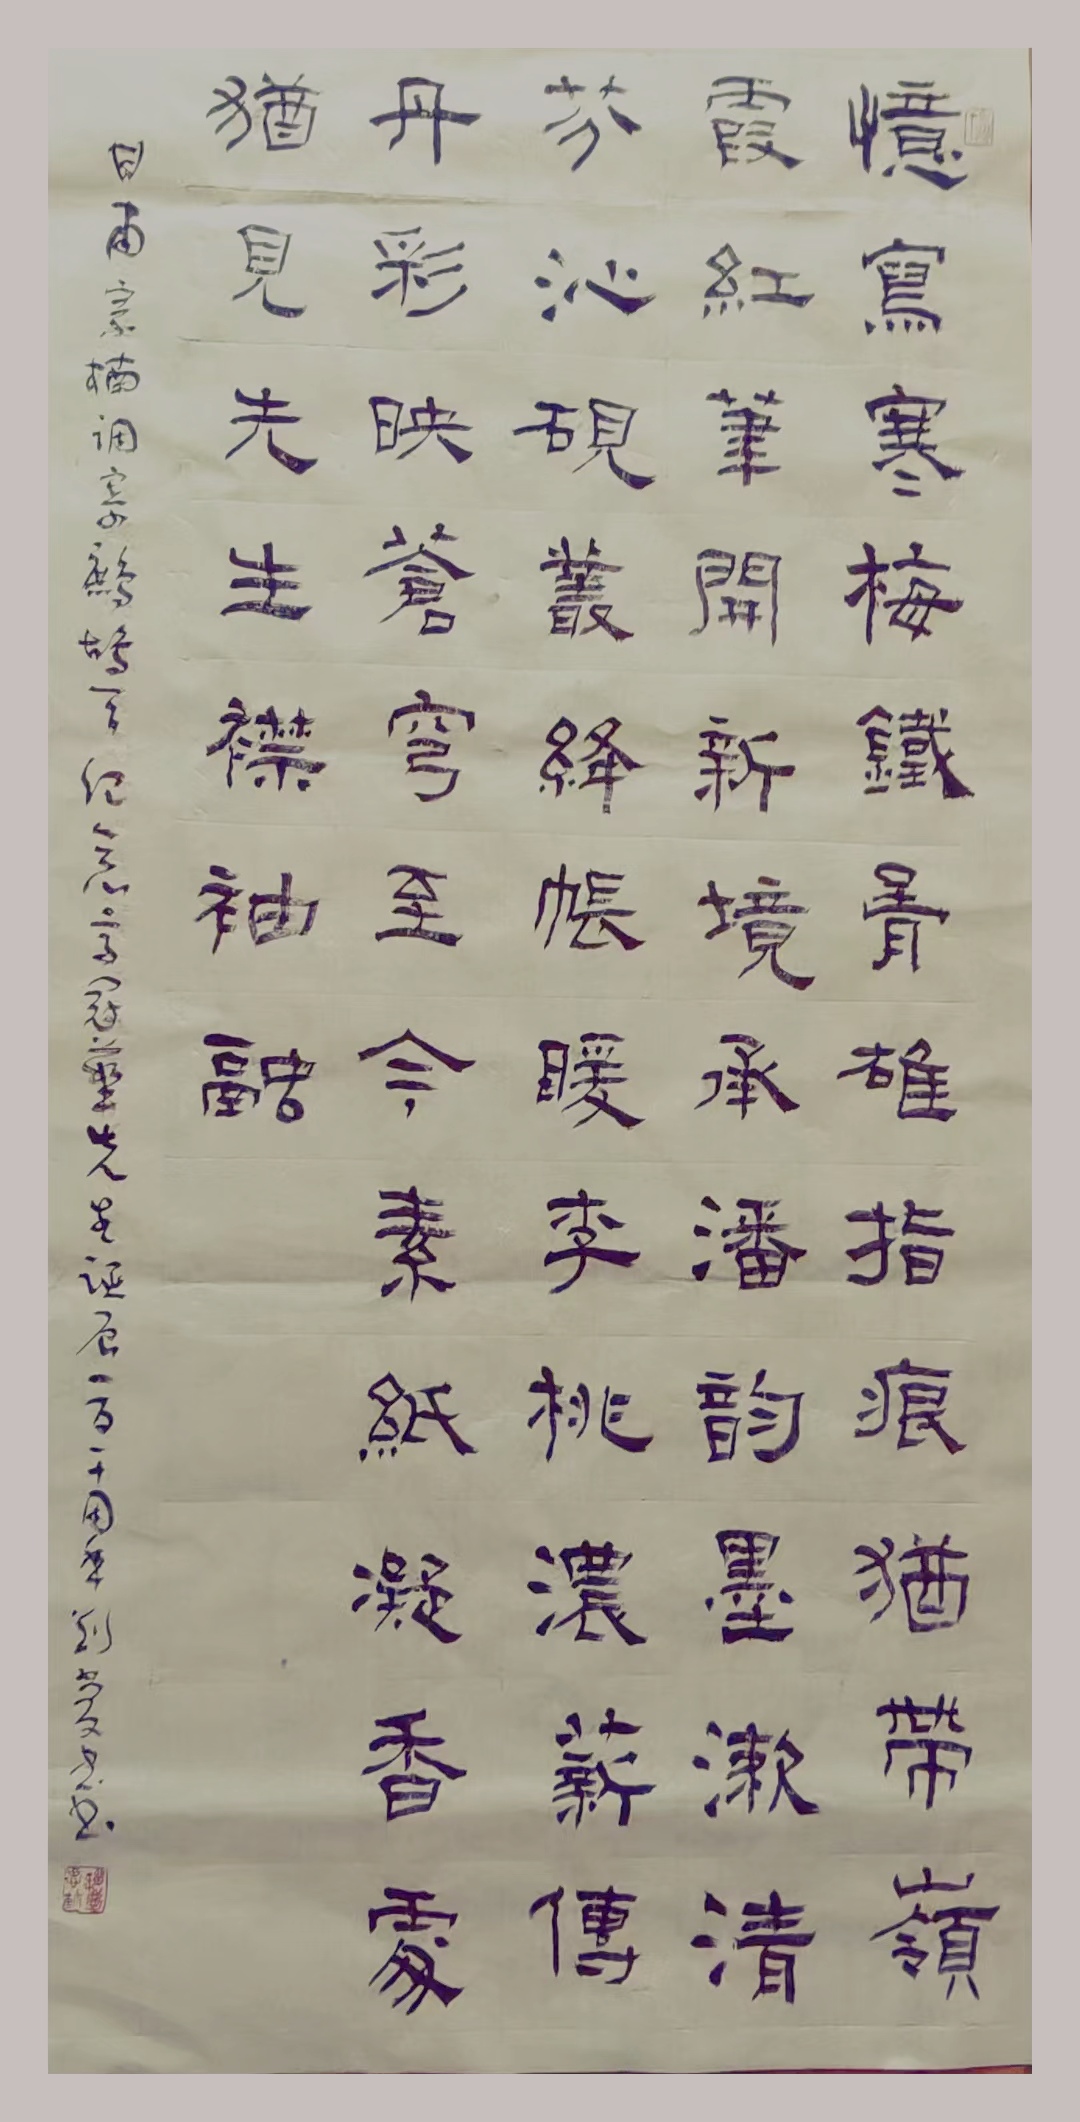 憶寫寒梅鐵骨雄指痕猶帶嶺
霞紅筆開新境承潘韵墨漱清
芬沁硯叢絳帳暖李桃濃薪傳
丹彩映蒼穹至今素紙凝香處
猶見先生襟袖融
调寄鹧鸪天纪念高冠華先生诞辰一百一十周年刘书